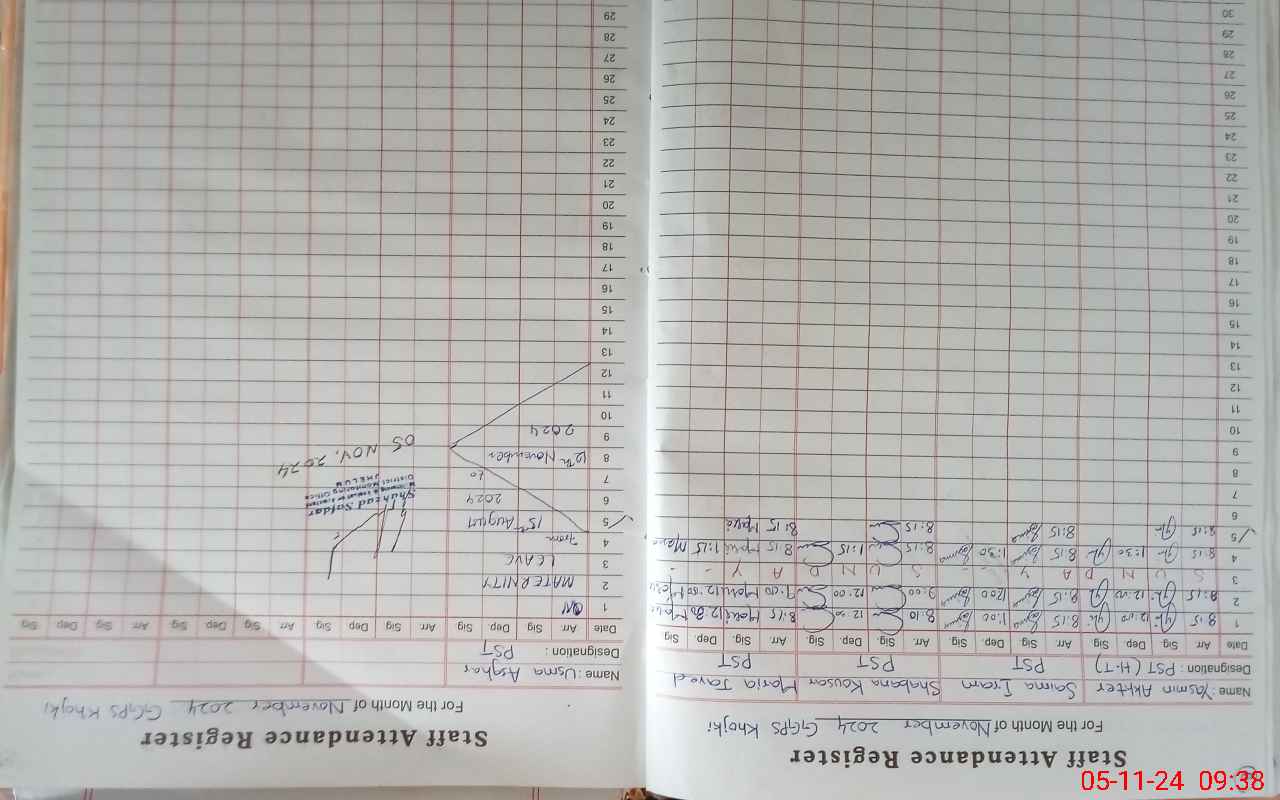 Staff Attendance Register
For the Month of November 2024 GGPS Khojki
Name: Yasmin Akhter Saima Iram Shabana Kousar Maria Javed
Designation: PST (H.T) PST PST PST
Date Arr. Sig. Dep. Sig. Arr. Sig. Dep. Sig. Arr. Sig. Dep. Sig. Arr. Sig. Dep. Sig
1 8:15 12:00 8:15 8:10 8:15 Maria
2 8:15 12:00 8:15 1200 9:00 12:00 9:00 Maria 12:00 Maria
3 S U N D A Y - - S U N D A Y - -
4 8:15 1:30 8:15 1:30 8:15 1:15 8:15 Maria 1:15 Maria
5 8:15 8:15 8:15 8:15 Maria
6
7
8
9
10
11
12
13
14
15
16
17
18
19
20
21
22
23
24
25
26
27
28
29
30
Staff Attendance Register
For the Month of November 2024 GGPS Khojki
Name: Usma Asghar
Designation: PST
Date Arr. Sig. Dep. Sig. Arr. Sig. Dep. Sig. Arr. Sig. Dep. Sig. Arr. Sig. Dep. Sig
1 ON
2 MATERNITY
3 LEAVE
4 From
5 15th August
6 2024
7 to
8 12th November
9 2024
10
11
12
13
14
15
16
17
18
19
20
21
22
23
24
25
26
27
28
29
Shahzad Safdar
District Monitoring Office
District JHELUM
05 NOV. 2024
05-11-24 09:38